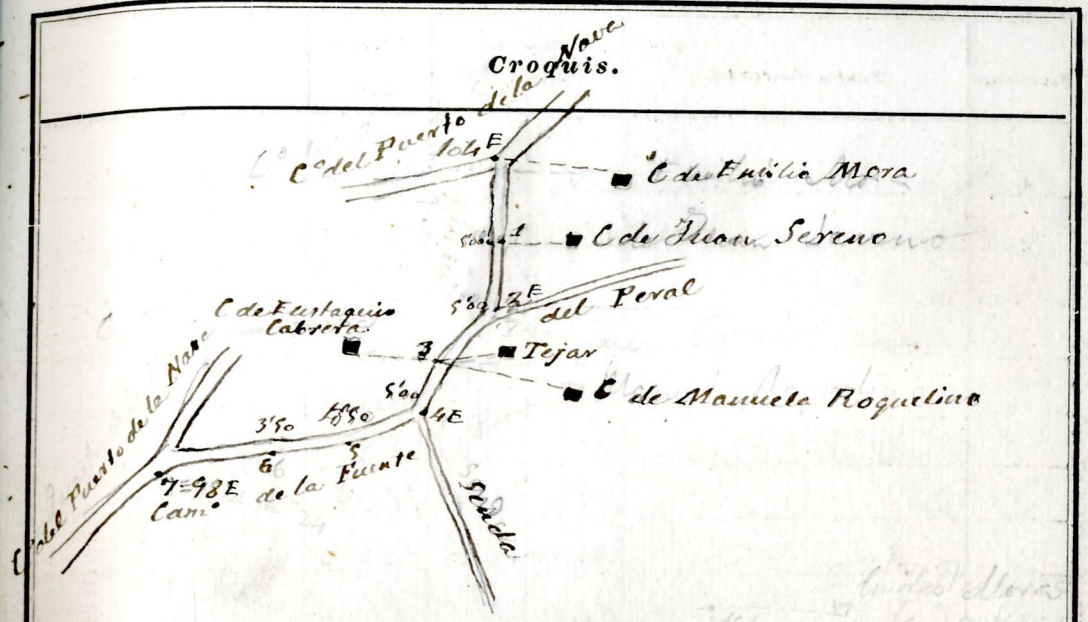 Croquis.
C.º del Puerto de la Nava
104 E
C de Emilio Mora
1
C de Juan Sereno
5'00
2 E
del Peral
C de Eustaquio
Cabrera
3
Tejar
C de Manuela Roquelina
5'00
4 E
3'50
5
6
de la Fuente
7=98 E
Cam.º
C.º del Puerto de la Nava
Senda